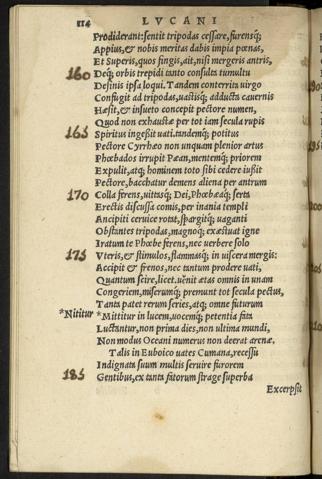 114 LVCANI
Prodiderant: sentit tripodas cessare, furensq;
Appius, & nobis meritas dabis impia pœnas,
Et Superis, quos fingis, ait, nisi mergeris antris,
160 Deq; orbis trepidi tanto consulta tumultu
Desinis ipsa loqui. Tandem conterrita uirgo
Confugit ad tripodas, uastisq; adducta cauernis
Hæsit, & insueto concepit pectore numen,
Quod non exhaustæ per tot iam secula rupis
165 Spiritus ingessit uati. tandemq; potitus
Pectore Cyrrhæo non unquam plenior artus
Phœbados irrupit Pæan, mentemq; priorem
Expulit, atq; hominem toto sibi cedere iussit
Pectore, bacchatur demens aliena per antrum
170 Colla ferens, uittasq; Dei, Phœbæaq; serta
Erectis discussa comis, per inania templi
Ancipiti ceruice rotat, spargitq; uaganti
Obstantes tripodas, magnoq; exæstuat igne
Iratum te Phœbe ferens, nec uerbere solo
175 Vteris, & stimulos, flammasq; in uiscera mergis:
Accipit & frenos, nec tantum prodere uati,
Quantum scire, licet. uenit ætas omnis in unam
Congeriem, miserumq; premunt tot secula pectus,
Tanta patet rerum series, atq; omne futurum
*Nititur *Mittitur in lucem, uocemq; petentia fata
Luctantur, non prima dies, non ultima mundi,
Non modus Oceani numerus non deerat arenæ,
Talis in Euboico uates Cumana, recessu
Indignata suum multis seruire furorem
185 Gentibus, ex tanta fatorum strage superba
Excerpsit